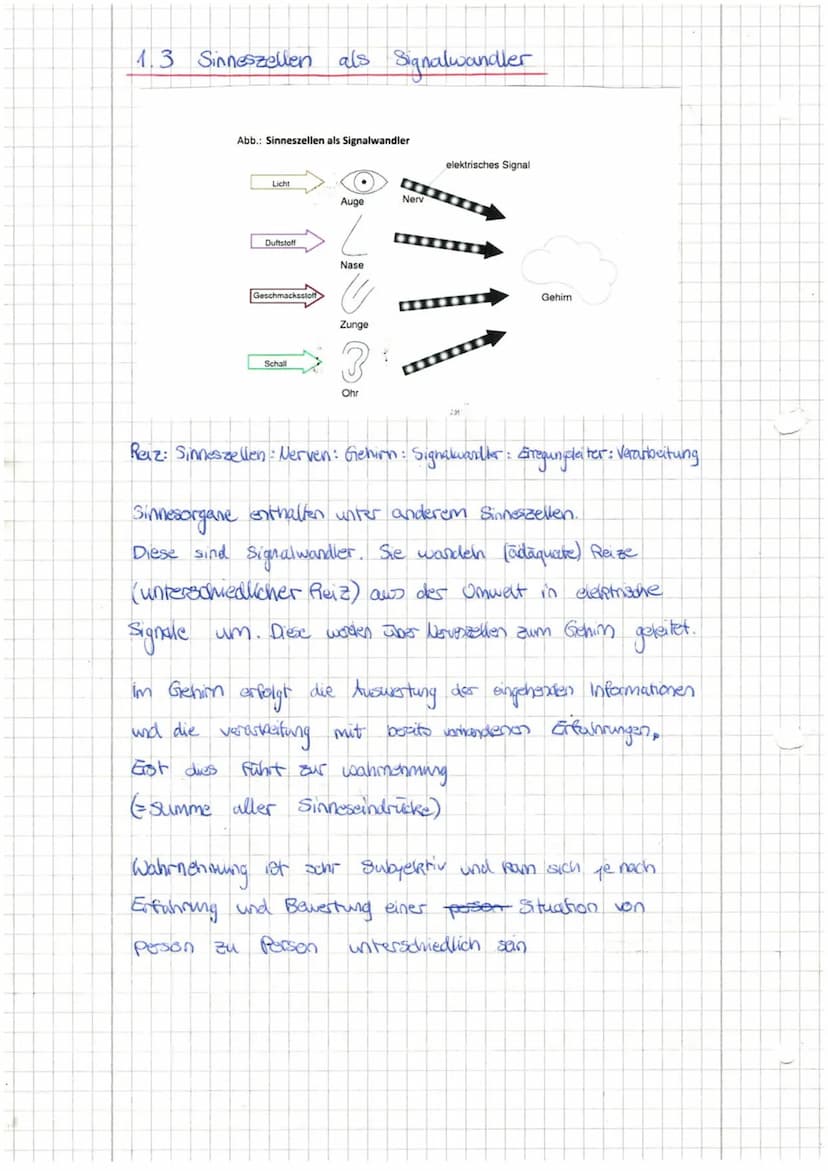 1.3 Sinneszellen als Signalwandler
Abb.: Sinneszellen als Signalwandler
elektrisches Signal
Licht
Auge
Nerv
Duftstoff
Nase
Geschmacksstoff
Gehirn
Zunge
Schall
Ohr
Reiz: Sinneszellen: Nerven: Gehirn: Signalwandler: Erregungsleiter: Verarbeitung
Sinnesorgane enthalten unter anderem Sinneszellen.
Diese sind Signalwandler. Sie wandeln (adäquate) Reize
(unterschiedlicher Reiz) aus der Umwelt in elektrische
Signale um. Diese werden über Nervenzellen zum Gehirn geleitet.
Im Gehirn erfolgt die Auswertung der eingehenden Informationen
und die verarbeitung mit bereits vorhandenen Erfahrungen.
Erst dies führt zur wahrnehmung
(= Summe aller Sinneseindrücke)
Wahrnehmung ist sehr Subjektiv und kann sich je nach
Erfahrung und Bewertung einer Situation von
Person zu Person unterschiedlich sein